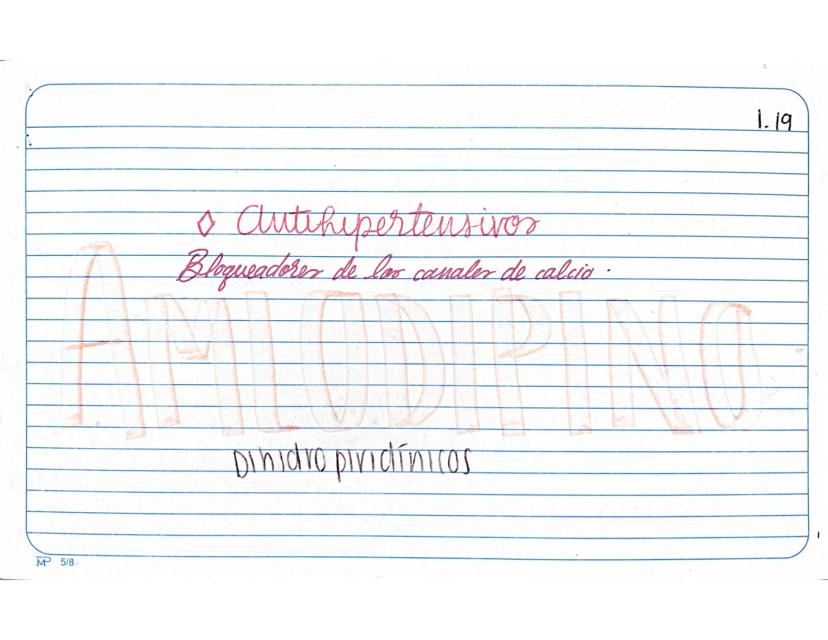 1.19
◊ Antihipertensivos
Bloqueadores de los canales de calcio.
AMLODIPINO
Dihidropiridínicos
MP 5/8